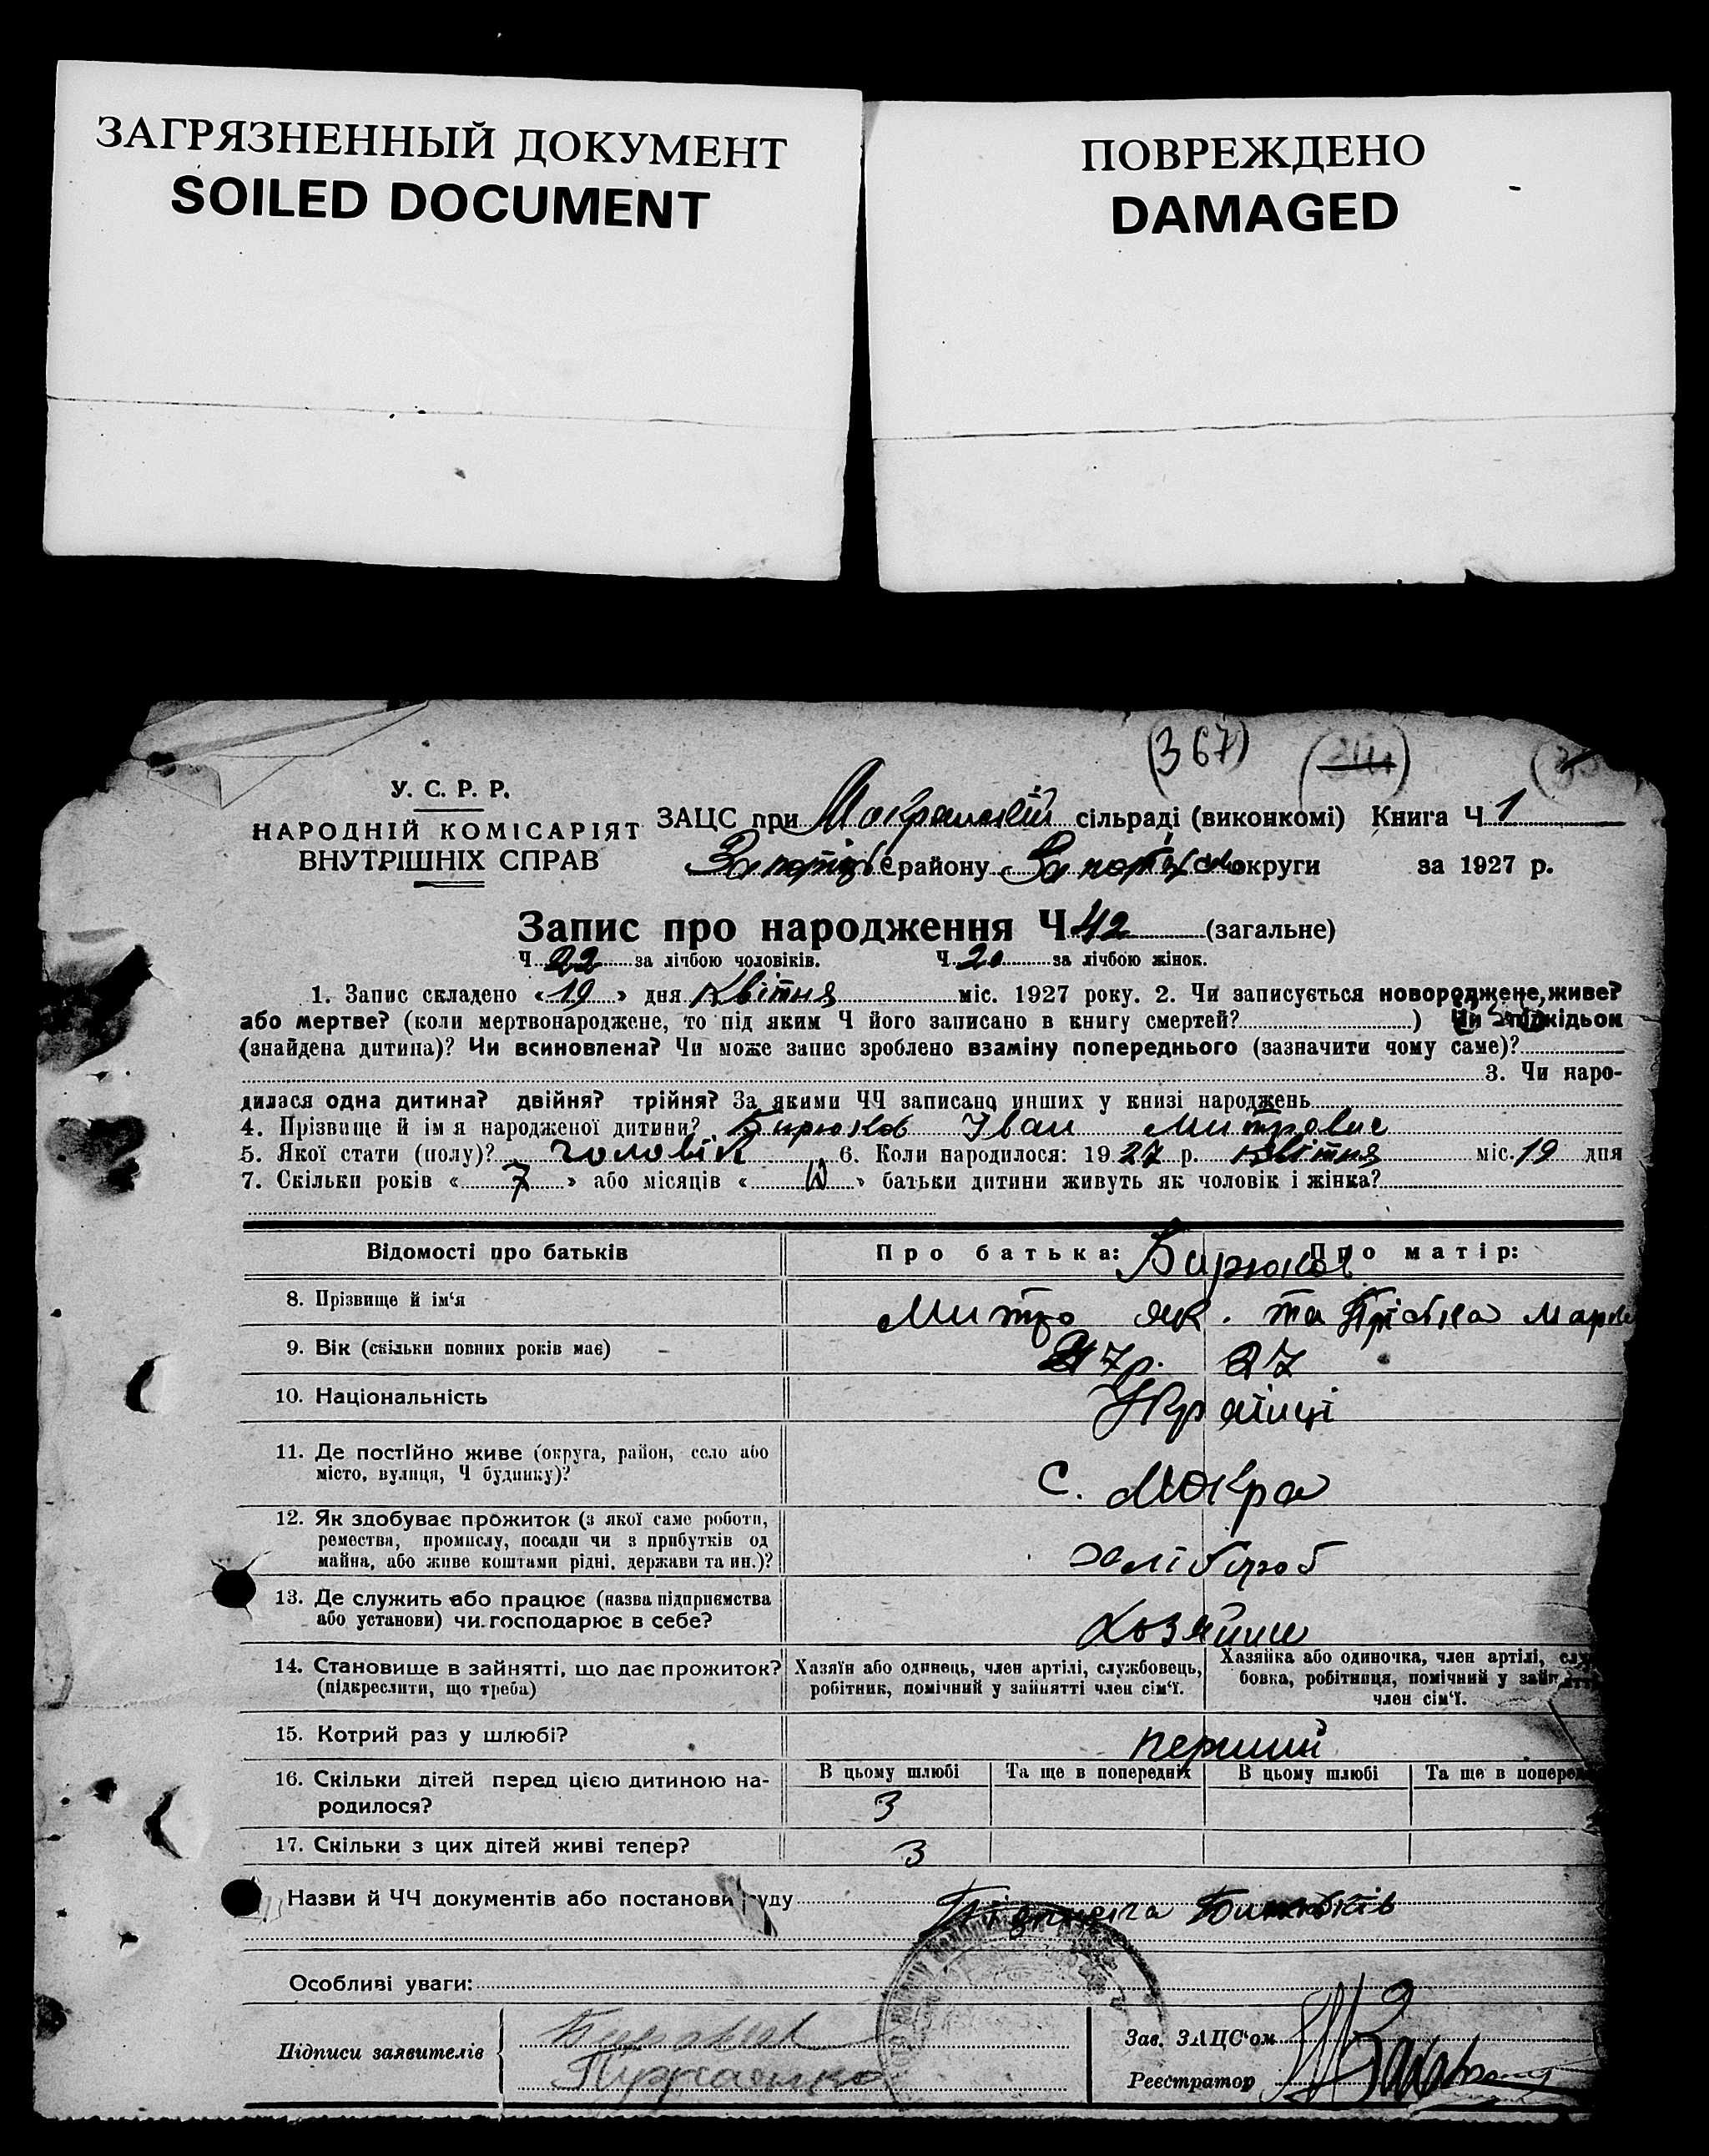 ЗАГРЯЗНЕННЫЙ ДОКУМЕНТ
SOILED DOCUMENT
ПОВРЕЖДЕНО
DAMAGED
(367)
У. С. Р. Р.
НАРОДНІЙ КОМІСАРІЯТ
ВНУТРІШНІХ СПРАВ
ЗАЦС при Мокрянській сільраді (виконкомі) Книга Ч 1
району округи за 1927 р.
Запис про народження Ч 42 (загальне)
Ч 22 за лічбою чоловіків. Ч 20 за лічбою жінок.
1. Запис складено «19» дня Квітня міс. 1927 року. 2. Чи записується новороджене, живе?
або мертве? (коли мертвонароджене, то під яким Ч його записано в книгу смертей? ) Чи підкідьок
(знайдена дитина)? Чи всиновлена? Чи може запис зроблено взаміну попереднього (зазначити чому саме)?
3. Чи наро-
дилася одна дитина? двійня? трійня? За якими ЧЧ записано инших у книзі народжень
4. Прізвище й ім я народженої дитини? Бирюков Іван Митрович
5. Якої стати (полу)? чоловік 6. Коли народилося: 1927 р. квітня міс. 19 дня
7. Скільки років «7» або місяців « » батьки дитини живуть як чоловік і жінка?
Відомості про батьків Про батька: Про матір:
Бирюков
8. Прізвище й ім‘я Митро як. та
9. Вік (скільки повних років має) 27р. 27
10. Національність Українці
11. Де постійно живе (округа, район, село або
місто, вулиця, Ч будинку)? С. Мокра
12. Як здобуває прожиток (з якої саме роботи,
ремества, промислу, посади чи з прибутків од
майна, або живе коштами рідні, держави та ин.)? хлібороб
13. Де служить або працює (назва підприємства
або установи) чи господарює в себе? хозяйин
14. Становище в зайнятті, що дає прожиток?
(підкреслити, що треба)
Хазяїн або одинець, член артілі, службовець,
робітник, помічний у зайнятті член сім‘ї.
Хазяйка або одиночка, член артілі, слу
бовка, робітниця, помічний у зайнятті
член сім‘ї.
15. Котрий раз у шлюбі? перший
16. Скільки дітей перед цією дитиною на-
родилося?
В цьому шлюбі Та ще в попередніх В цьому шлюбі Та ще в попере
3
17. Скільки з цих дітей живі тепер? 3
Назви й ЧЧ документів або постанови суду
Особливі уваги:
Підписи заявителів
Зав. ЗАЦС‘ом
Реєстратор